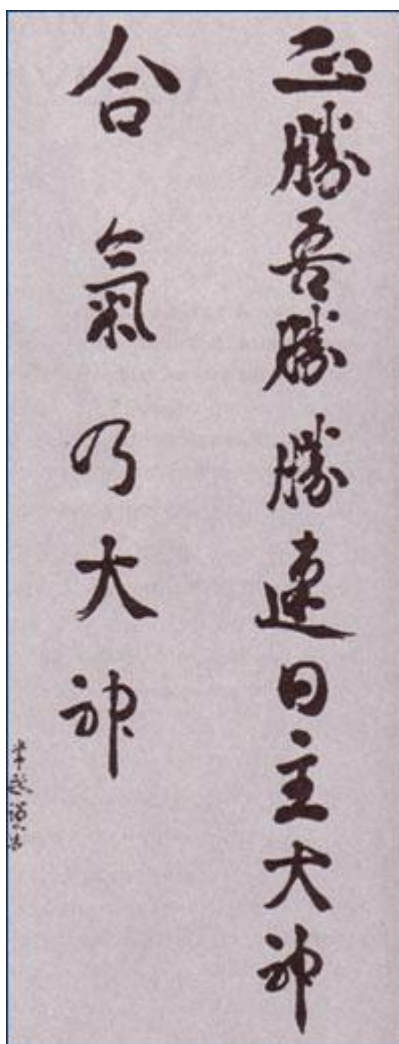 正勝吾勝勝速日主大神
合氣乃大神